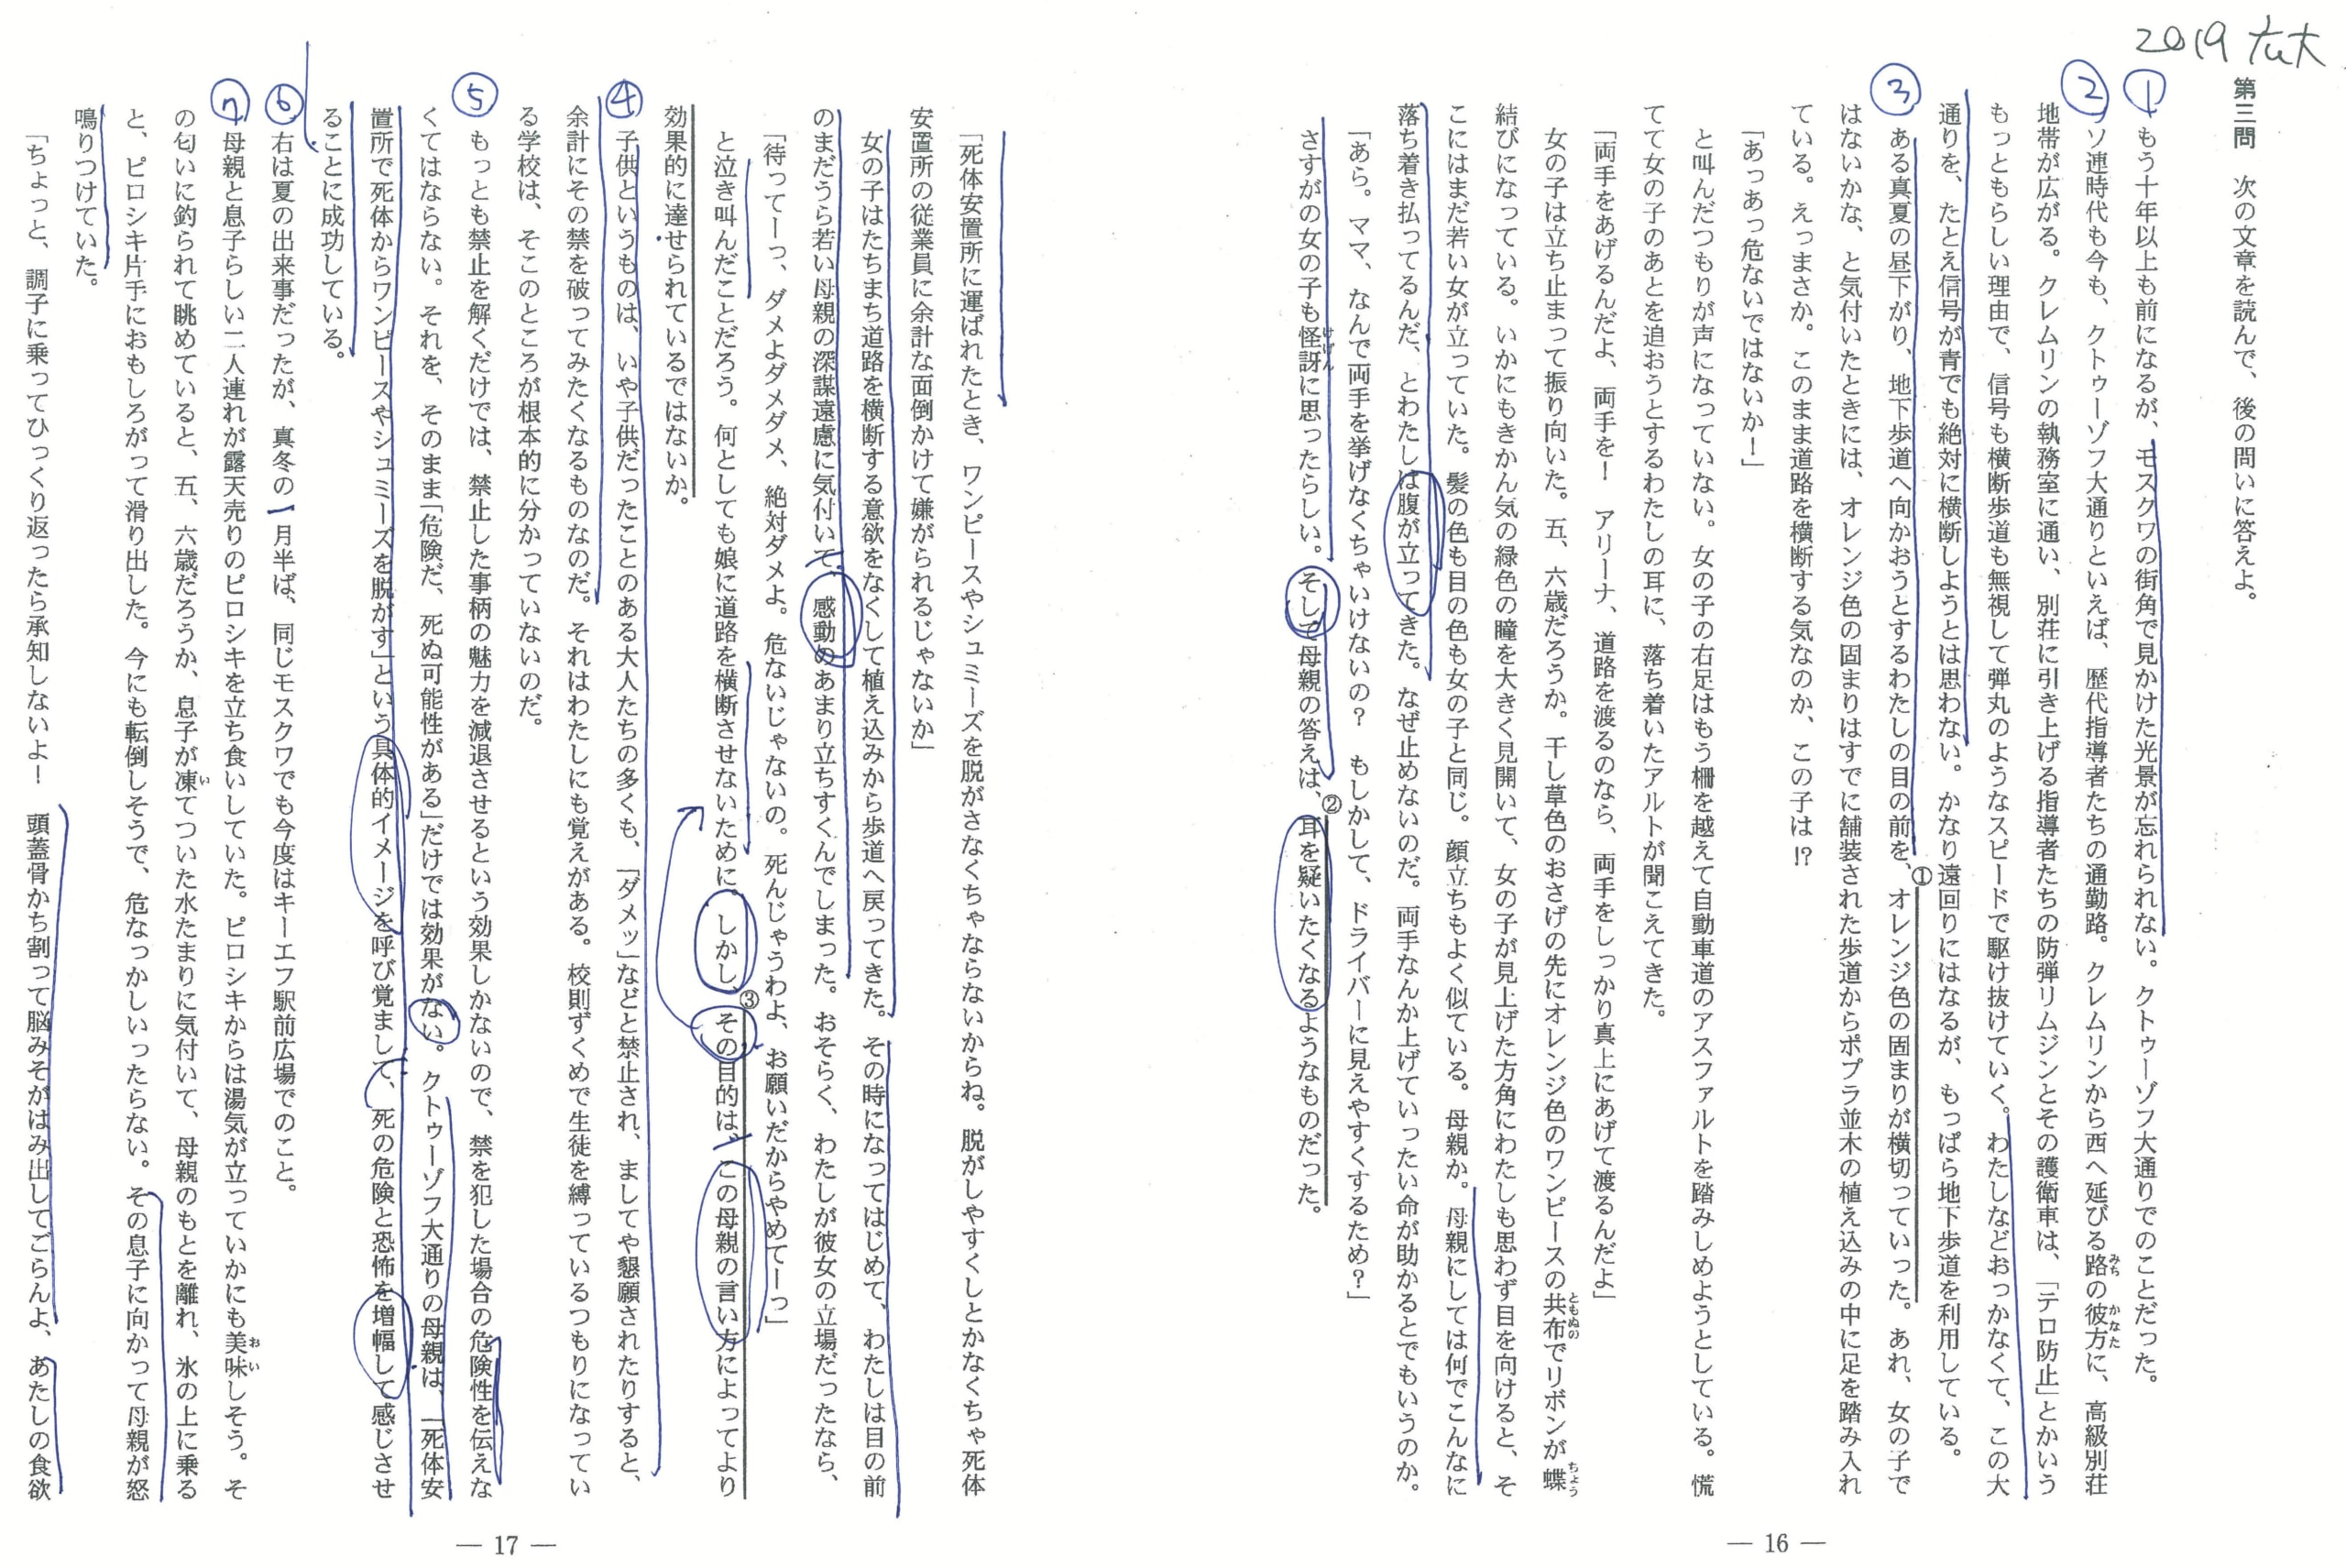 2019 九大
第三問　次の文章を読んで、後の問いに答えよ。
① もう十年以上も前になるが、モスクワの街角で見かけた光景が忘れられない。クトゥーゾフ大通りでのことだった。
② ソ連時代も今も、クトゥーゾフ大通りといえば、歴代指導者たちの通勤路。クレムリンから西へ延びる路(みち)の彼方(かなた)に、高級別荘
地帯が広がる。クレムリンの執務室に通い、別荘に引き上げる指導者たちの防弾リムジンとその護衛車は、「テロ防止」とかいう
もっともらしい理由で、信号も横断歩道も無視して弾丸のようなスピードで駆け抜けていく。わたしなどおっかなくて、この大
通りを、たとえ信号が青でも絶対に横断しようとは思わない。かなり遠回りにはなるが、もっぱら地下歩道を利用している。
③ ある真夏の昼下がり、地下歩道へ向かおうとするわたしの目の前を、①オレンジ色の固まりが横切っていった。あれ、女の子で
はないかな、と気付いたときには、オレンジ色の固まりはすでに舗装された歩道からポプラ並木の植え込みの中に足を踏み入れ
ている。えっまさか。このまま道路を横断する気なのか、この子は!?
「あっあっ危ないではないか！」
と叫んだつもりが声になっていない。女の子の右足はもう柵を越えて自動車道のアスファルトを踏みしめようとしている。慌
てて女の子のあとを追おうとするわたしの耳に、落ち着いたアルトが聞こえてきた。
「両手をあげるんだよ、両手を！　アリーナ、道路を渡るのなら、両手をしっかり真上にあげて渡るんだよ」
女の子は立ち止まって振り向いた。五、六歳だろうか。干し草色のおさげの先にオレンジ色のワンピースの共布(ともぬの)でリボンが蝶(ちょう)
結びになっている。いかにもきかん気の緑色の瞳を大きく見開いて、女の子が見上げた方角にわたしも思わず目を向けると、そ
こにはまだ若い女が立っていた。髪の色も目の色も女の子と同じ。顔立ちもよく似ている。母親か。母親にしては何でこんなに
落ち着き払ってるんだ、とわたしは腹が立ってきた。なぜ止めないのだ。両手なんか上げていったい命が助かるとでもいうのか。
「あら。ママ、なんで両手を挙げなくちゃいけないの？　もしかして、ドライバーに見えやすくするため？」
さすがの女の子も怪訝(けげん)に思ったらしい。そして母親の答えは、②耳を疑いたくなるようなものだった。
― 16 ―
「死体安置所に運ばれたとき、ワンピースやシュミーズを脱がさなくちゃならないからね。脱がしやすくしとかなくちゃ死体
安置所の従業員に余計な面倒かけて嫌がられるじゃないか」
女の子はたちまち道路を横断する意欲をなくして植え込みから歩道へ戻ってきた。その時になってはじめて、わたしは目の前
のまだうら若い母親の深謀遠慮に気付いて、感動のあまり立ちすくんでしまった。おそらく、わたしが彼女の立場だったなら、
「待ってーっ、ダメよダメダメ、絶対ダメよ。危ないじゃないの。死んじゃうわよ、お願いだからやめてーっ」
と泣き叫んだことだろう。何としても娘に道路を横断させないために。しかし、③その目的は、この母親の言い方によってより
効果的に達せられているではないか。
④ 子供というものは、いや子供だったことのある大人たちの多くも、「ダメッ」などと禁止され、ましてや懇願されたりすると、
余計にその禁を破ってみたくなるものなのだ。それはわたしにも覚えがある。校則ずくめで生徒を縛っているつもりになってい
る学校は、そこのところが根本的に分かっていないのだ。
⑤ もっとも禁止を解くだけでは、禁止した事柄の魅力を減退させるという効果しかないので、禁を犯した場合の危険性を伝えな
くてはならない。それを、そのまま「危険だ、死ぬ可能性がある」だけでは効果がない。クトゥーゾフ大通りの母親は、「死体安
置所で死体からワンピースやシュミーズを脱がす」という具体的イメージを呼び覚まして、死の危険と恐怖を増幅して感じさせ
ることに成功している。
⑥ 右は夏の出来事だったが、真冬の一月半ば、同じモスクワでも今度はキーエフ駅前広場でのこと。
⑦ 母親と息子らしい二人連れが露天売りのピロシキを立ち食いしていた。ピロシキからは湯気が立っていかにも美味(おい)しそう。そ
の匂いに釣られて眺めていると、五、六歳だろうか、息子が凍(い)てついた水たまりに気付いて、母親のもとを離れ、氷の上に乗る
と、ピロシキ片手におもしろがって滑り出した。今にも転倒しそうで、危なっかしいったらない。その息子に向かって母親が怒
鳴りつけていた。
「ちょっと、調子に乗ってひっくり返ったら承知しないよ！　頭蓋骨かち割って脳みそがはみ出してごらんよ、あたしの食欲
― 17 ―